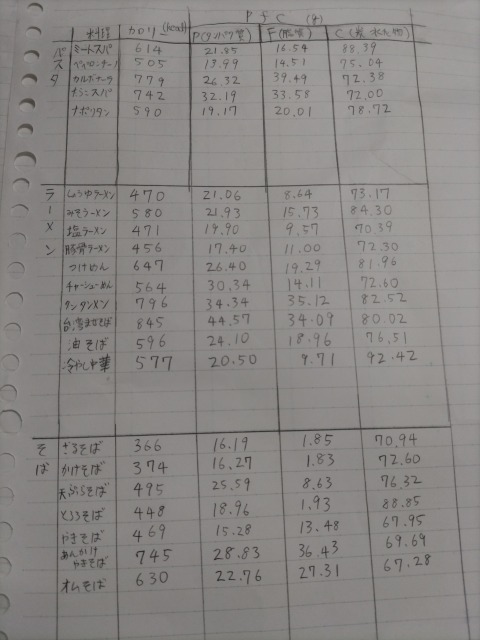 PFC (g)
料理 カロリー(kcal) P(タンパク質) F(脂質) C(炭水化物)
パスタ
ミートスパ 614 21.85 16.54 88.39
ペペロンチーノ 505 13.99 14.51 75.04
カルボナーラ 779 26.32 39.49 72.38
742 32.19 33.58 72.00
ナポリタン 590 19.17 20.01 78.72
ラーメン
しょうゆラーメン 470 21.06 8.64 73.17
みそラーメン 580 21.93 15.73 84.30
塩ラーメン 471 19.90 9.57 70.39
豚骨ラーメン 456 17.40 11.00 72.30
つけめん 647 26.40 19.29 81.96
チャーシューめん 564 30.34 14.11 72.60
タンタンメン 796 34.34 35.12 82.52
台湾まぜそば 845 44.57 34.09 80.02
油そば 596 24.10 18.96 76.51
冷やし中華 577 20.50 9.71 92.42
そば
ざるそば 366 16.19 1.85 70.94
かけそば 374 16.27 1.83 72.60
天ぷらそば 495 25.59 8.63 76.32
とろろそば 448 18.96 1.93 88.85
やきそば 469 15.28 13.48 67.95
あんかけやきそば 745 28.83 36.43 69.69
オムそば 630 22.76 27.31 67.28